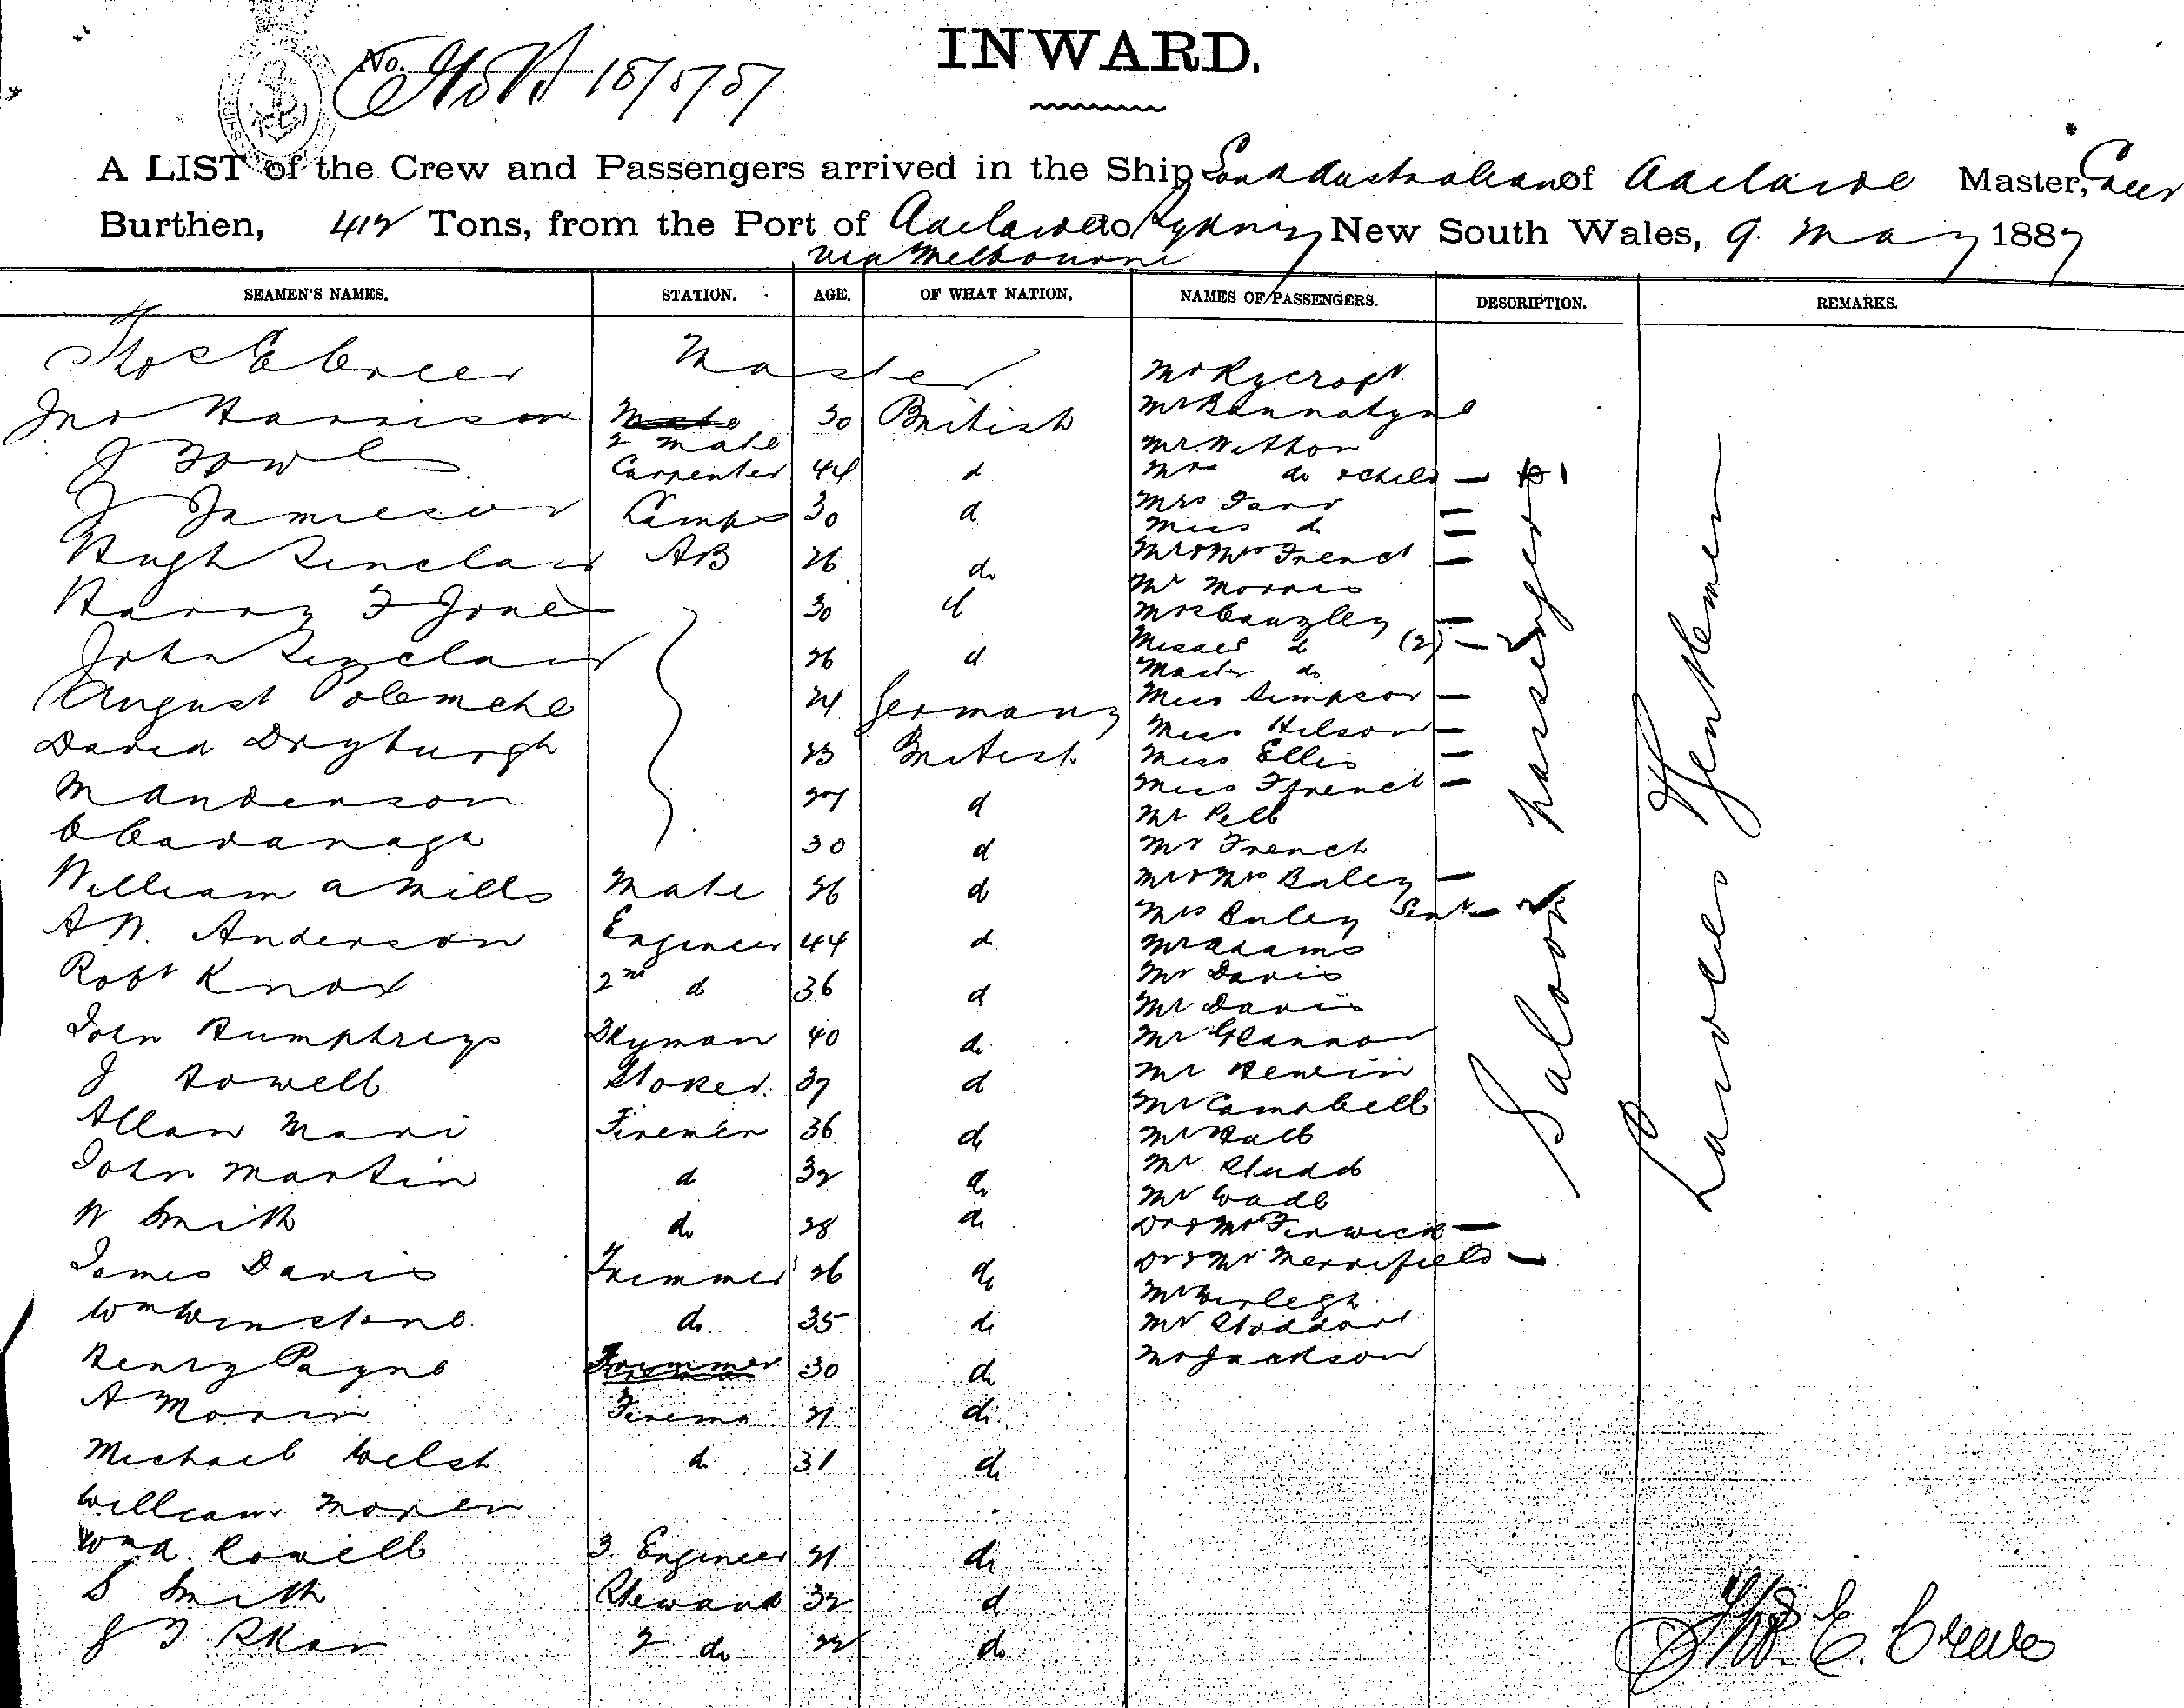 No. 18/5/87
INWARD.
A LIST of the Crew and Passengers arrived in the Ship South Australian of Adelaide Master, Creer
Burthen, 412 Tons, from the Port of Adelaide to Sydney New South Wales, 9. May 1887
via Melbourne
SEAMEN'S NAMES. STATION. AGE. OF WHAT NATION. NAMES OF PASSENGERS. DESCRIPTION. REMARKS.
Thos E Creer Master Mr Rycroft
Jno Harrison Mate 2 Mate 30 British Mr Bannatyne
Mr Witton
J Fowler Carpenter 44 d Mrs do & child — 1
J Jamieson Lamps 30 d Mrs Farr —
Miss d —
Hugh Sinclair AB 26 do Mr & Mrs French —
Mr Morris
Harry F Jones 30 d Mrs Caugley —
Misses d (2) — 2
John Sinclair 26 d Master do
August 24 Germany Miss Simpson —
Miss Hilson —
David Dryburgh 23 British Miss Ellis —
Miss Ffrench —
M Anderson 27 d Mr Pell
C Cavanagh 30 d Mr French
William A Mills Mate 26 d Mr & Mrs Buley —
Mrs Buley Senr —
A W. Anderson Engineer 44 d Mr Adams
Mr Davis
Robt Knox 2nd d 36 d Mr Davis
John Humphreys Dkyman 40 do Mr Glannon
J Howell Stoker 37 d Mr Henein
Mr Campbell
Allan Mari Firemen 36 do Mr Hall
John Martin d 32 do Mr Studd
Mr Wade
W Smith do 28 do Dr & Mrs Fenwick —
James Davis Trimmer 26 do Dr & Mrs Merrifield —
Mr Burleigh
Wm Winstone do 35 do Mr Stoddart
Henry Payne Trimmer 30 do Mr Jackson
A Morris Firema 21 do
Michael Welsh d 31 do
William Moren
Wm A. Rowell 3 Engineer 21 do
S Smith Steward 32 d
J T Skar 2 do 22 do
Saloon Passengers
Ladies Gentlemen
Thos. E. Creer